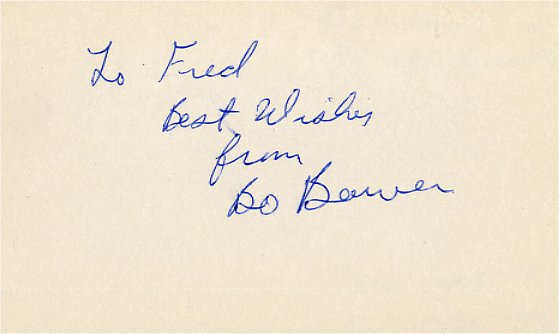 To Fred
Best Wishes
from
Bo Bowen